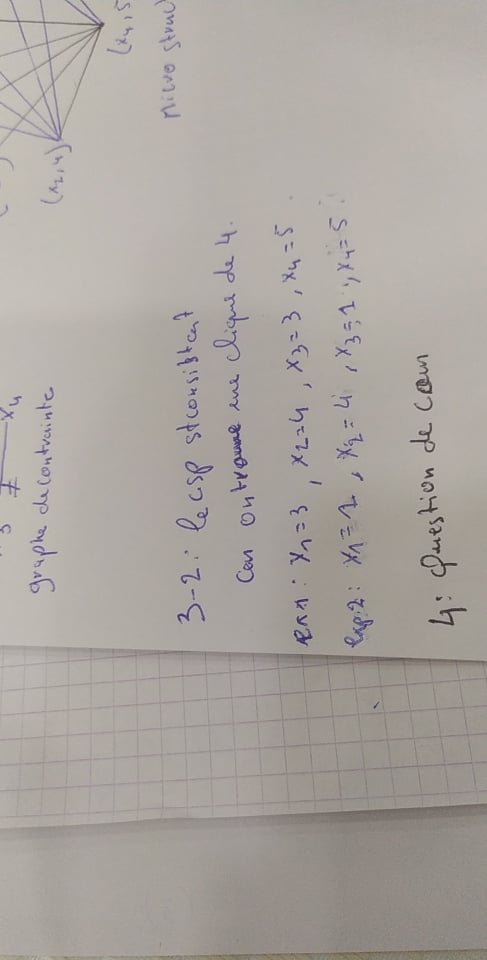 3 ≠ x4
graphe de contrainte
(x2,4)
(x4,5
Micro struct
3-2: le csp st consistent
Car on trouve une clique de 4.
ex1: x1=3, x2=4, x3=3, x4=5.
exp.2: x1=1, x2=4, x3=1, x4=5.
4: Question de cour